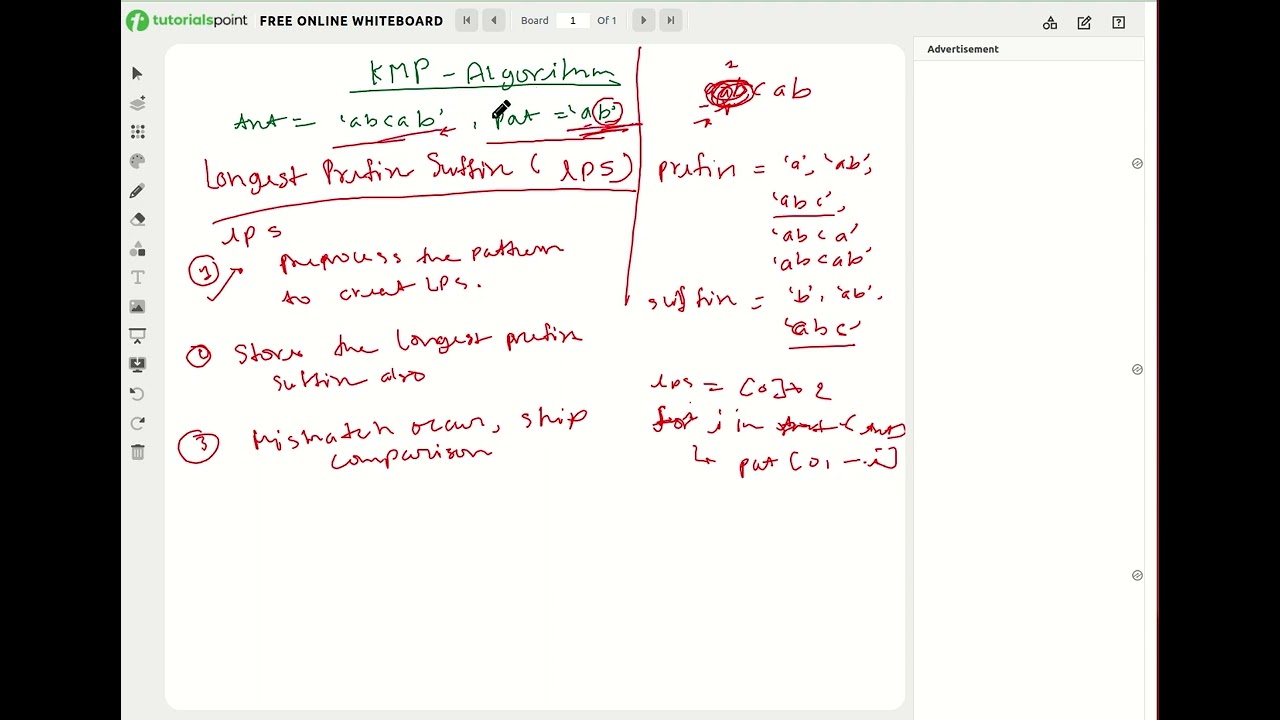 tutorialspoint FREE ONLINE WHITEBOARD Board 1 Of 1
Advertisement
KMP - Algorithm
txt = 'abcab', pat = 'ab'
Longest Prefix Suffix (LPS)
LPS
1 Preprocess the pattern
to creat LPS.
Stores the longest prefix
suffix also
3 Mismatch occur, skip
comparison
abcab
prefix = 'a', 'ab',
'abc',
'abca'
'abcab'
suffix = 'b', 'ab',
'abc'
LPS = [0] → 2
for i in
↳ pat [0, - i]